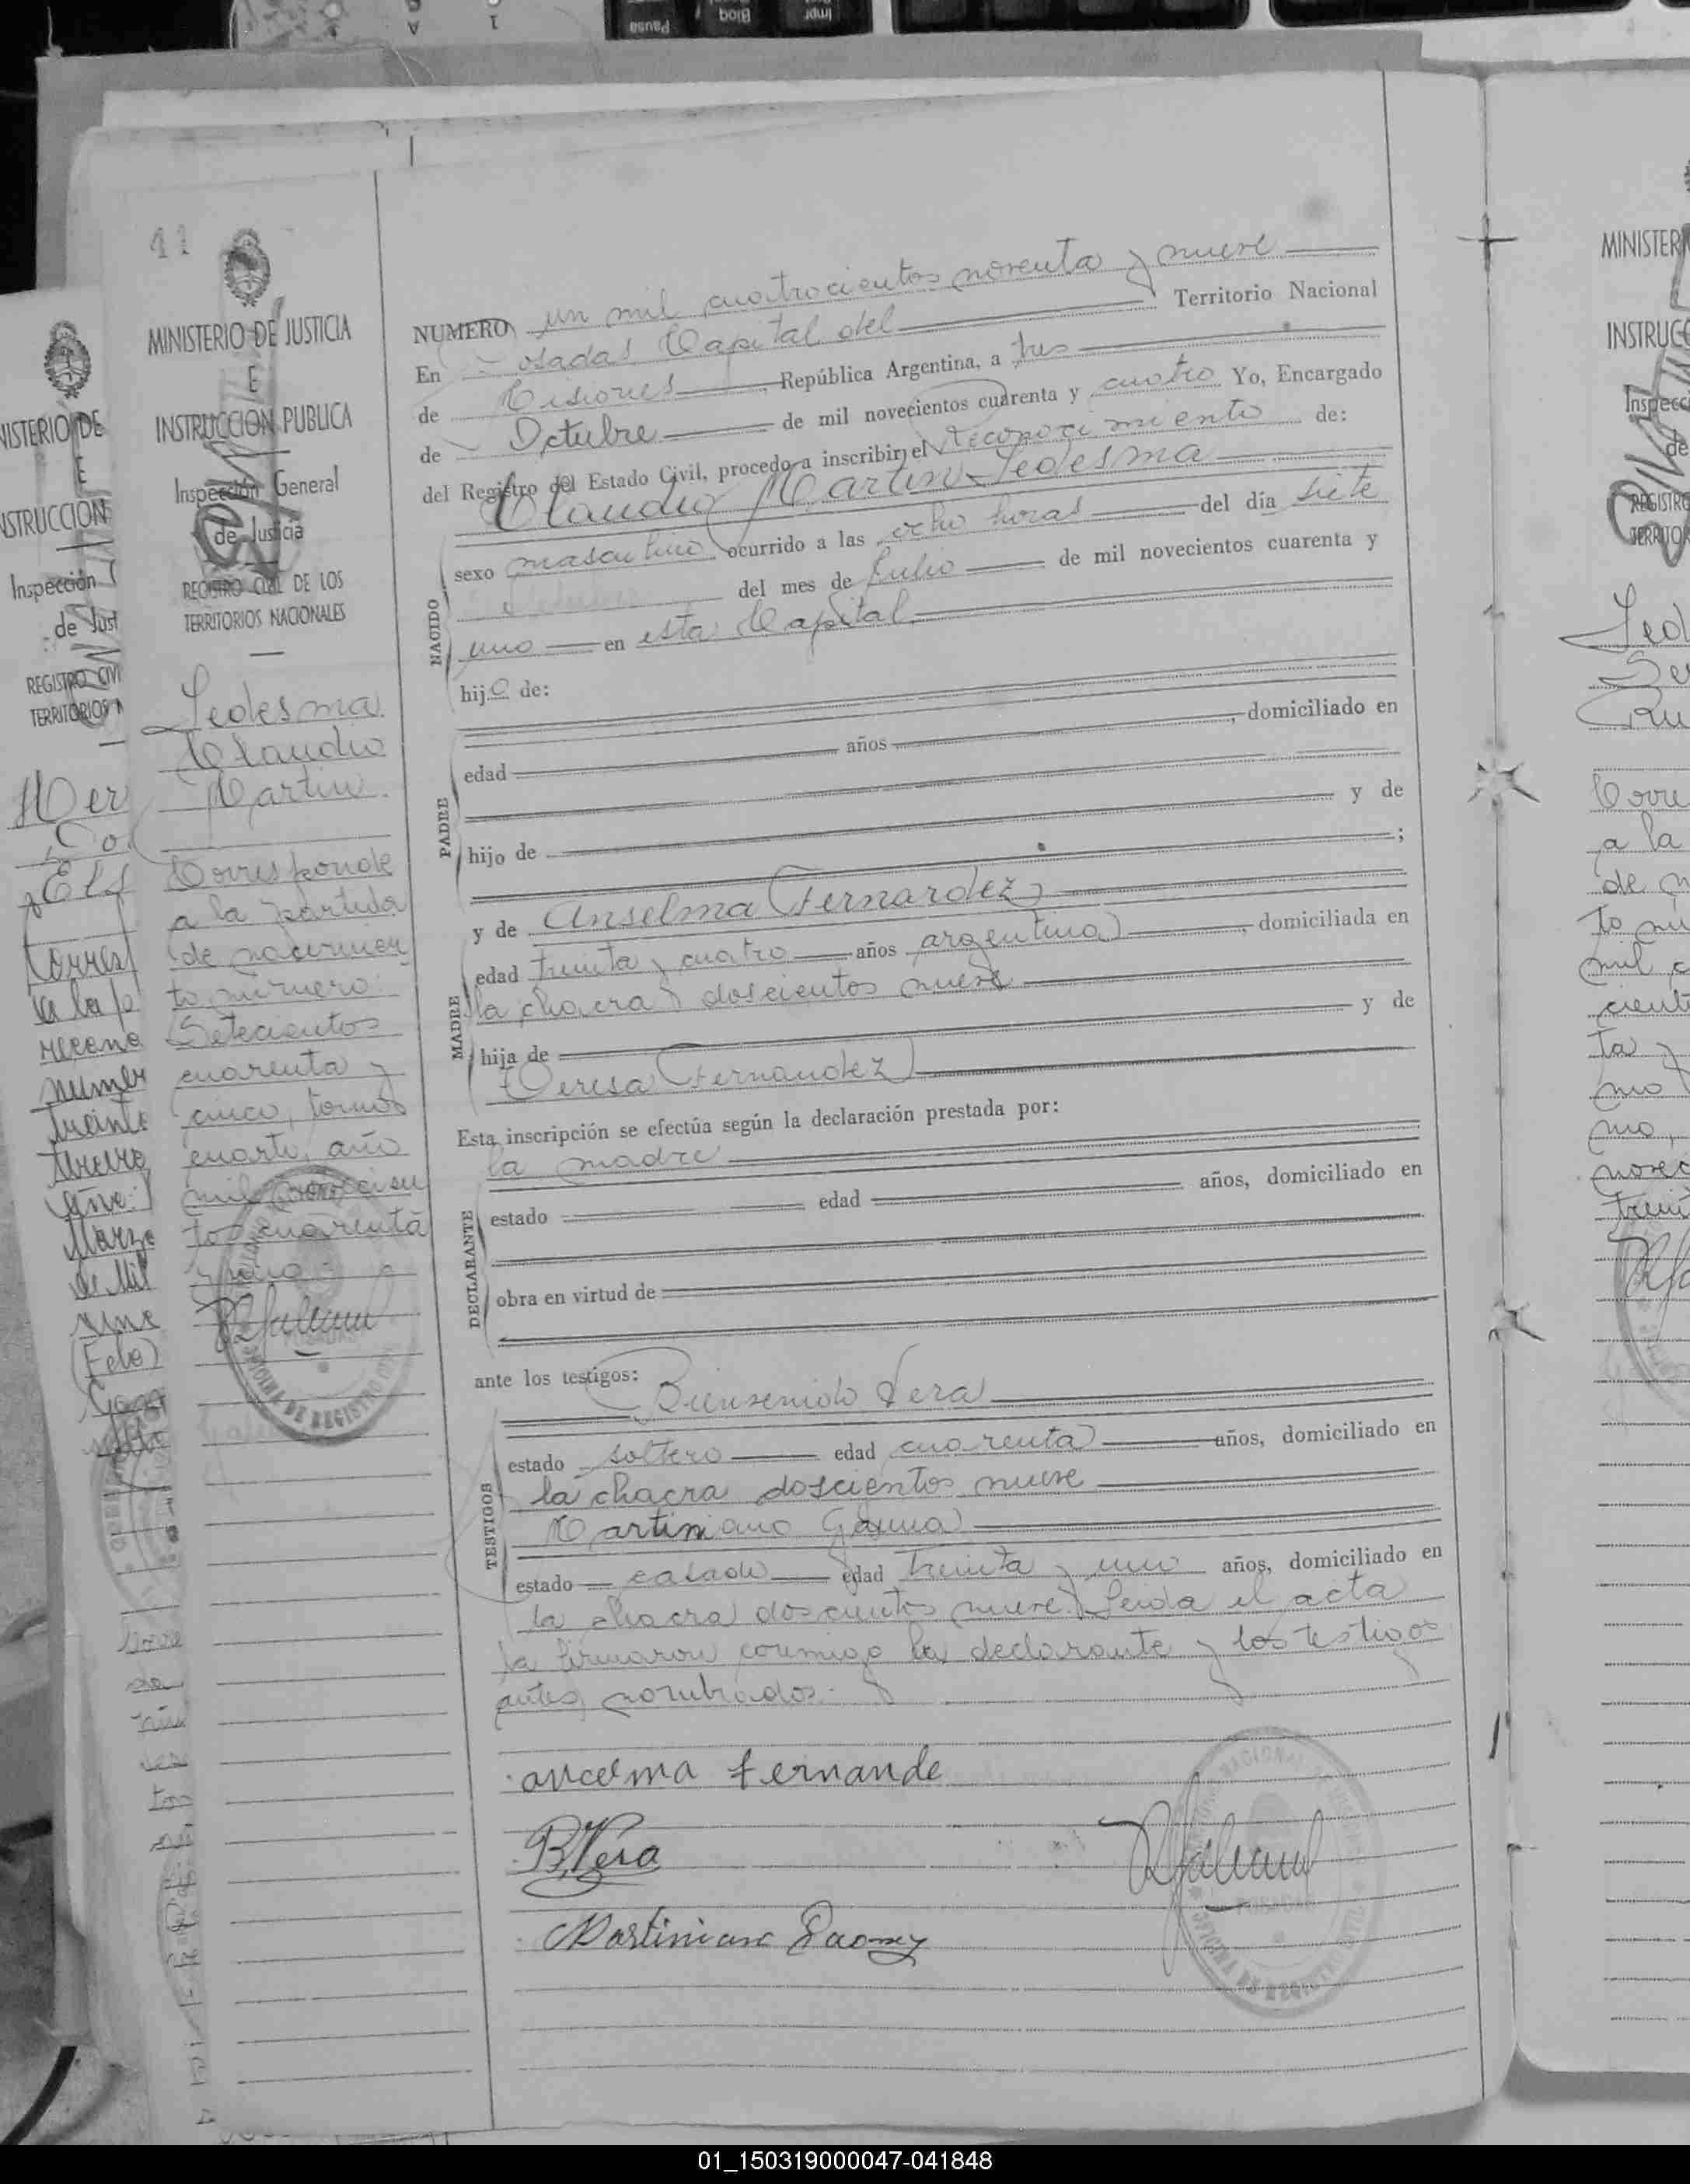 41
MINISTERIO DE JUSTICIA
E
INSTRUCCION PUBLICA
Inspección General
de Justicia
REGISTRO CIVIL DE LOS
TERRITORIOS NACIONALES
Ledesma
Claudio
Martin.
Corresponde
a la partida
de nacimien
to número
Setecientos
cuarenta y
cinco, tomo
cuarto, año
mil novecien
tos cuarenta
y uno.-
NUMERO un mil cuatrocientos noventa y nueve
En Posadas Capital del Territorio Nacional
de Misiones, República Argentina, a tres
de Octubre de mil novecientos cuarenta y cuatro Yo, Encargado
del Registro del Estado Civil, procedo a inscribir el reconocimiento de:
Claudio Martin Ledesma
NACIDO
sexo masculino ocurrido a las ocho horas del día siete
del mes de Julio de mil novecientos cuarenta y
uno en esta Capital
hijo de:
PADRE
edad años, domiciliado en
hijo de y de
;
y de Anselma Fernandez
MADRE
edad treinta y cuatro años argentina, domiciliada en
la chacra doscientos nueve
hija de y de
Teresa Fernandez
Esta inscripción se efectúa según la declaración prestada por:
la madre
DECLARANTE
estado edad años, domiciliado en
obra en virtud de
ante los testigos:
Bienvenido Vera
TESTIGOS
estado soltero edad cuarenta años, domiciliado en
la chacra doscientos nueve
Martiniano
estado casado edad treinta y uno años, domiciliado en
la chacra doscientos nueve. Leida el acta
la firmaron conmigo la declarante y los testigos
antes nombrados.-
ancelma fernande
B Vera
Martiniano
MINISTER
INSTRUCC
Inspecci
de
REGISTRO
TERRITOR
01_150319000047-041848